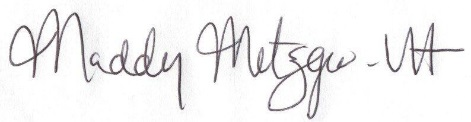 Maddy Metzger-Utt